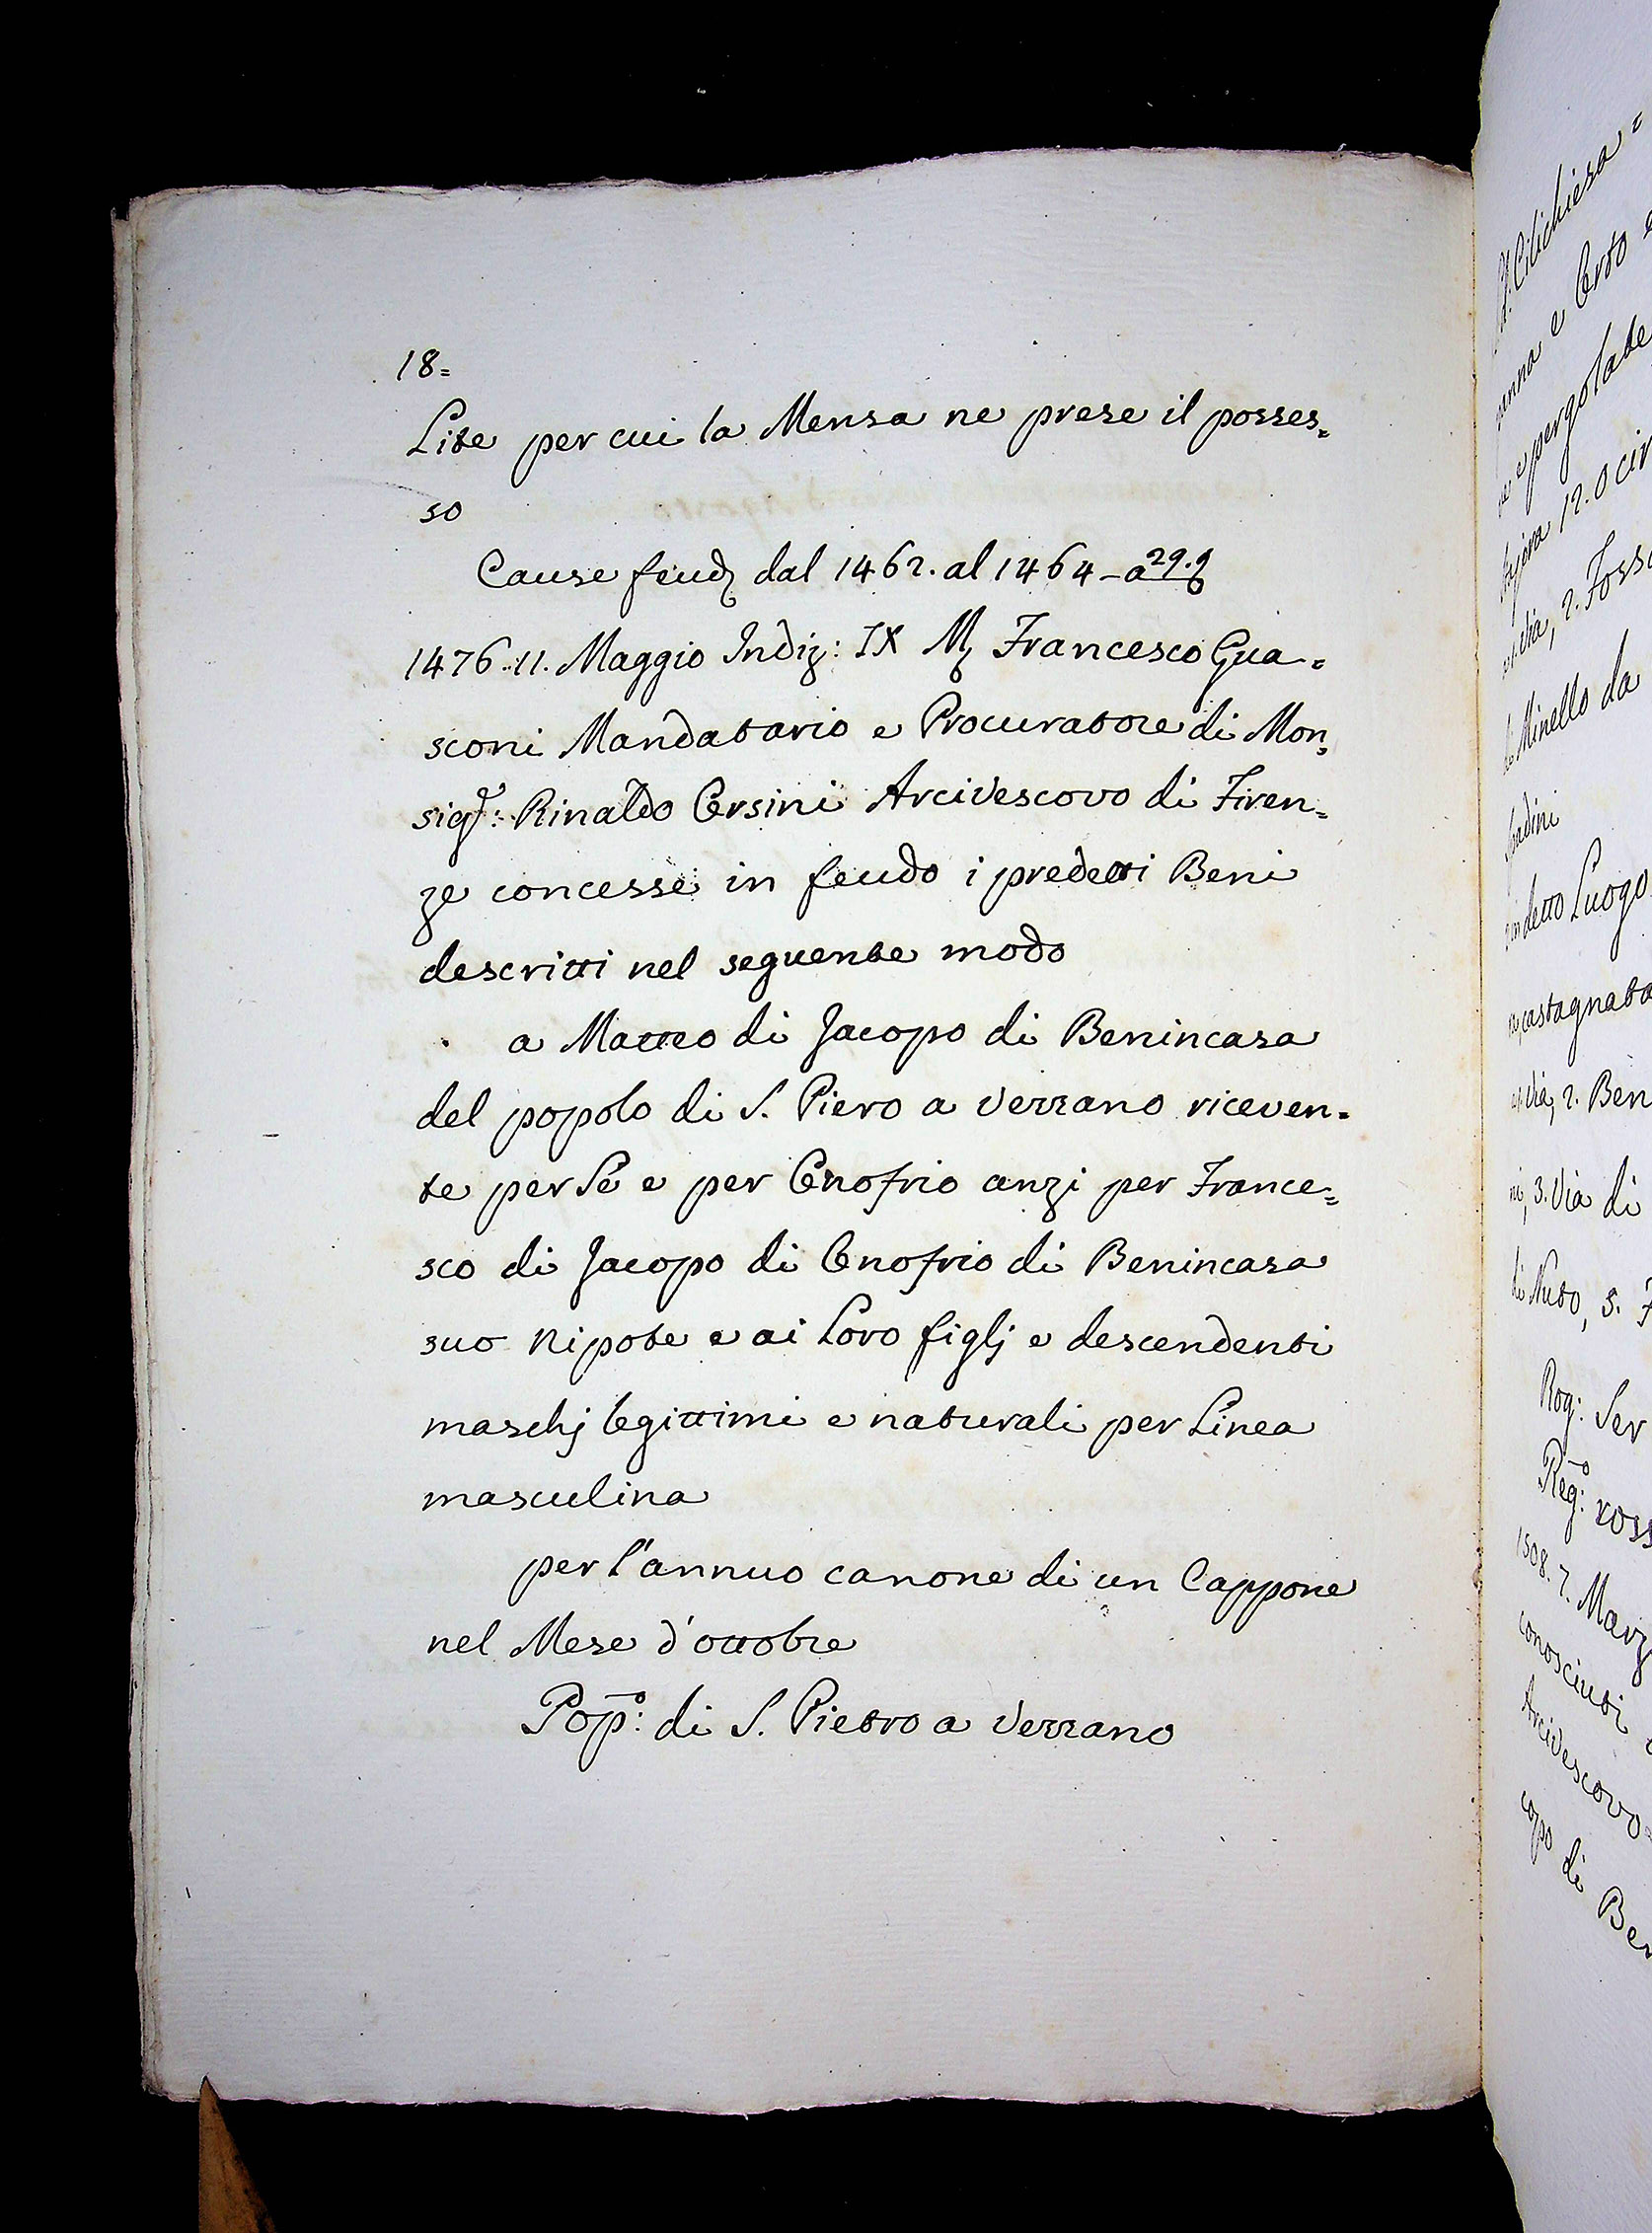 18=
Lite per cui la Mensa ne prese il posses=
so
Cause feud dal 1462. al 1464 - a 29.
1476.11. Maggio Indiz: IX M Francesco Gua=
sconi Mandatario e Procuratore di Mon=
sigr: Rinaldo Orsini Arcivescovo di Firen=
ze concesse in feudo i predetti Beni
descritti nel seguente modo
a Matteo di Jacopo di Benincasa
del popolo di S. Piero a Verrano riceven=
te per Se e per Onofrio anzi per France=
sco di Jacopo di Onofrio di Benincasa
suo Nipote e ai Loro figlj e descendenti
maschj legittimi e naturali per Linea
masculina
per l'annuo canone di un Cappone
nel Mese d'ottobre
Popo: di S. Pietro a Verrano
Cilichiesa =
e Orto
e pergolate
12. O cir
via, 2. Fosso
di Minello da
detto Luogo
castagnato
via, 2. Ben
3. Via di
di Nuto, 3.
Rog: Ser
Rego: ross
1508. 7. Marz
conosciuti
Arcivescovo
di Ben